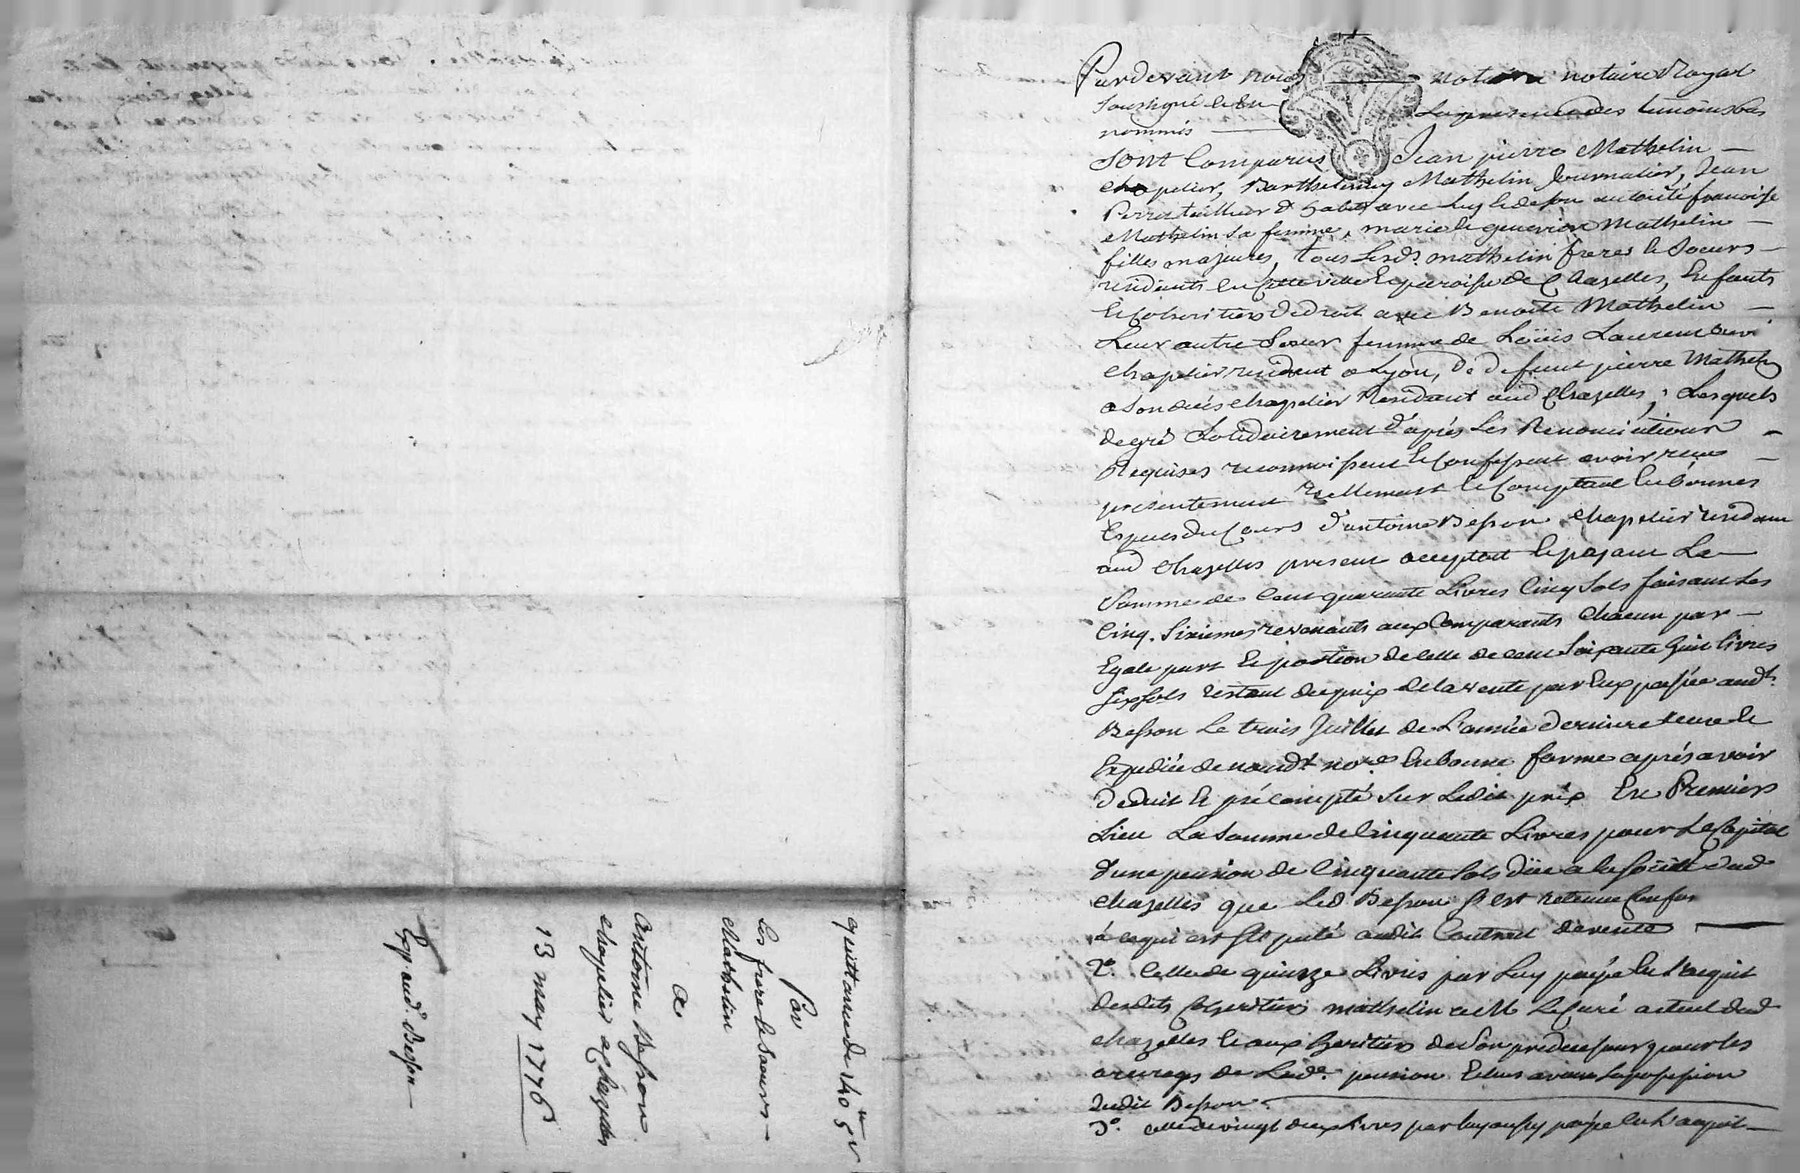 Pardevant nous notaire Royal
soussigné et en la presence des temoins bas
nommés
sont Comparus Jean pierre Mathelin
chapelier, Barthelemy Mathelin Journalier, Jean
Perra tailleur d'habits avec luy et de son autorité françoise
Mathelin sa femme, marie et Mathelin
filles majeures, tous lesds. mathelin freres et soeurs
residents en cette ville et paroisse de Chazelles, Enfants
et Coheritiers de droit avec Benoite Mathelin
Leur autre Soeur femme de Loüis Laurent
chapelier resident a Lyon, de defunt pierre Mathelin
a son decés chapelier Residant aud Chazelles; Lesquels
de gré solidairement d'après les Renonciations
Requises reconnoissent et Confessent avoir reçu
presentement reellement et Comptant en bonnes
Especes du Cours d'antoine Besson chapelier resident
aud Chazelles present acceptant et payant La
Somme de Cent quarante Livres Cinq Sols faisant les
Cinq Sixiemes revenants aux Comparants chacun par
Egale part et portion de celle de cent soixante huit livres
six sols restant du prix de la vente par Eux passée audt.
Besson Le trois Juillet de L'année derniere receue et
Expediée de nousdt. nore. En bonne forme après avoir
deduit et précompté sur Ledit prix En Premiers
Lieu La somme de Cinquante Livres pour Le Capital
d'une pension de Cinquante sols düe a la societé dud
chazelles que Led Besson s'est retenue
à ce qui est stipulé audit Contrat de vente
2°. Celle de quinze Livres par Luy payée En l'acquit
desdits Coheritiers mathelin a M Le Curé actuel dud
chazelles et aux heritiers de son predecesseur pour les
arrerages de Lade. pension Echus avant La possession
dudit Besson.
3°. celle de vingt deux livres par luy aussy payée En L'acquit
quittance de 140ᵗᵗ 5ˢ
Par
les frere et soeurs
Mathelin
a
Antoine Besson
chapelier a Chazelles
13 may 1776
Exp aud. Besson